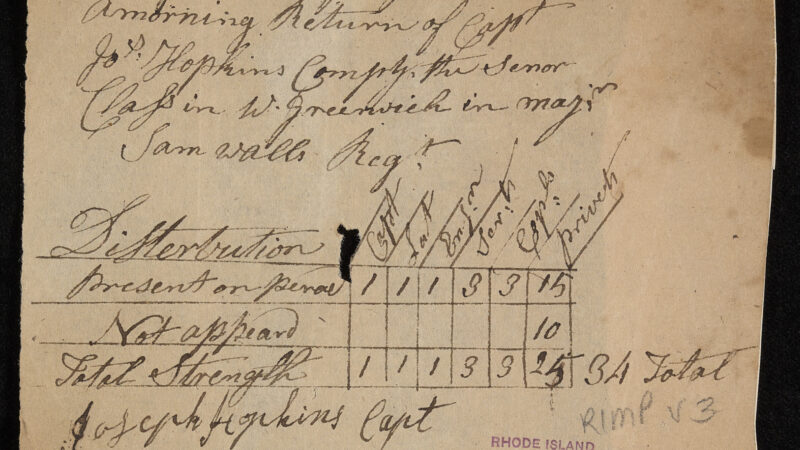 Amorning Return of Capt
Jos. Hopkins Compy. the Senor
Class in W. Greenwich in majr
Sam walls Regt
Disterbution Capt Lut Ensn Serjt Cpls privets
Present on perad 1 1 1 3 3 15
Not appeard 10
Total Strength 1 1 1 3 3 25 34 Total
Joseph Hopkins Capt
RIMP v 3
RHODE ISLAND